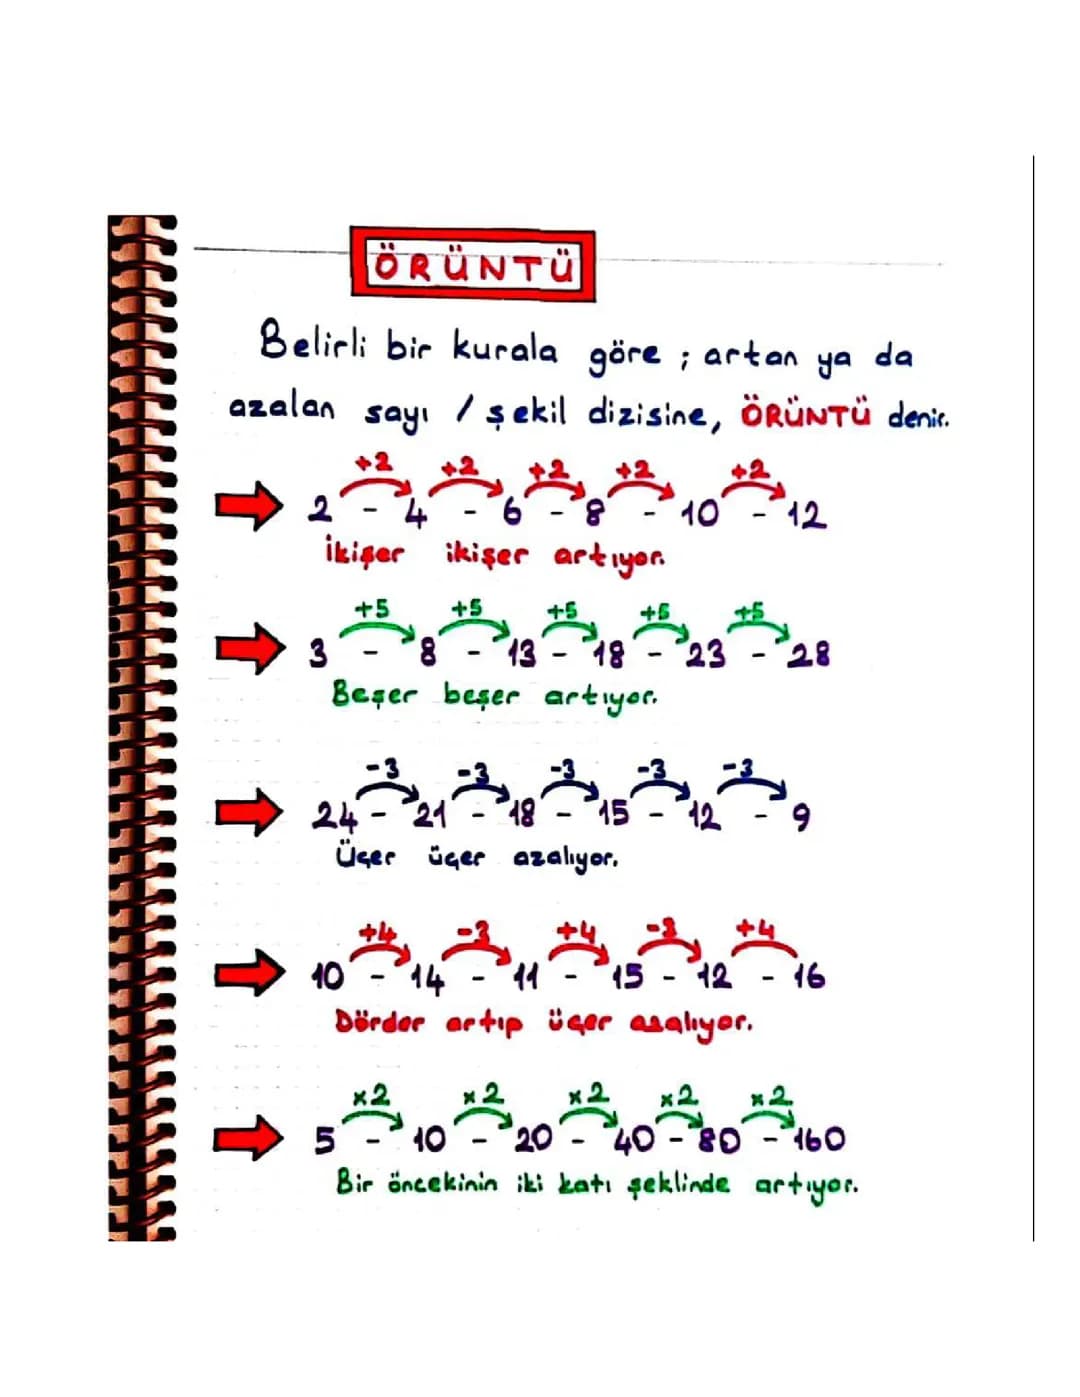 ÖRÜNTÜ
Belirli bir kurala göre ; artan ya da
azalan sayı / şekil dizisine, ÖRÜNTÜ denir.
+2 +2 +2 +2 +2
2 - 4 - 6 - 8 - 10 - 12
İkişer ikişer artıyor.
+5 +5 +5 +5 +5
3 - 8 - 13 - 18 - 23 - 28
Beşer beşer artıyor.
-3 -3 -3 -3 -3
24 - 21 - 18 - 15 - 12 - 9
Üçer üçer azalıyor.
+4 -3 +4 -3 +4
10 - 14 - 11 - 15 - 12 - 16
Dörder artıp üçer azalıyor.
x2 x2 x2 x2 x2
5 - 10 - 20 - 40 - 80 - 160
Bir öncekinin iki katı şeklinde artıyor.